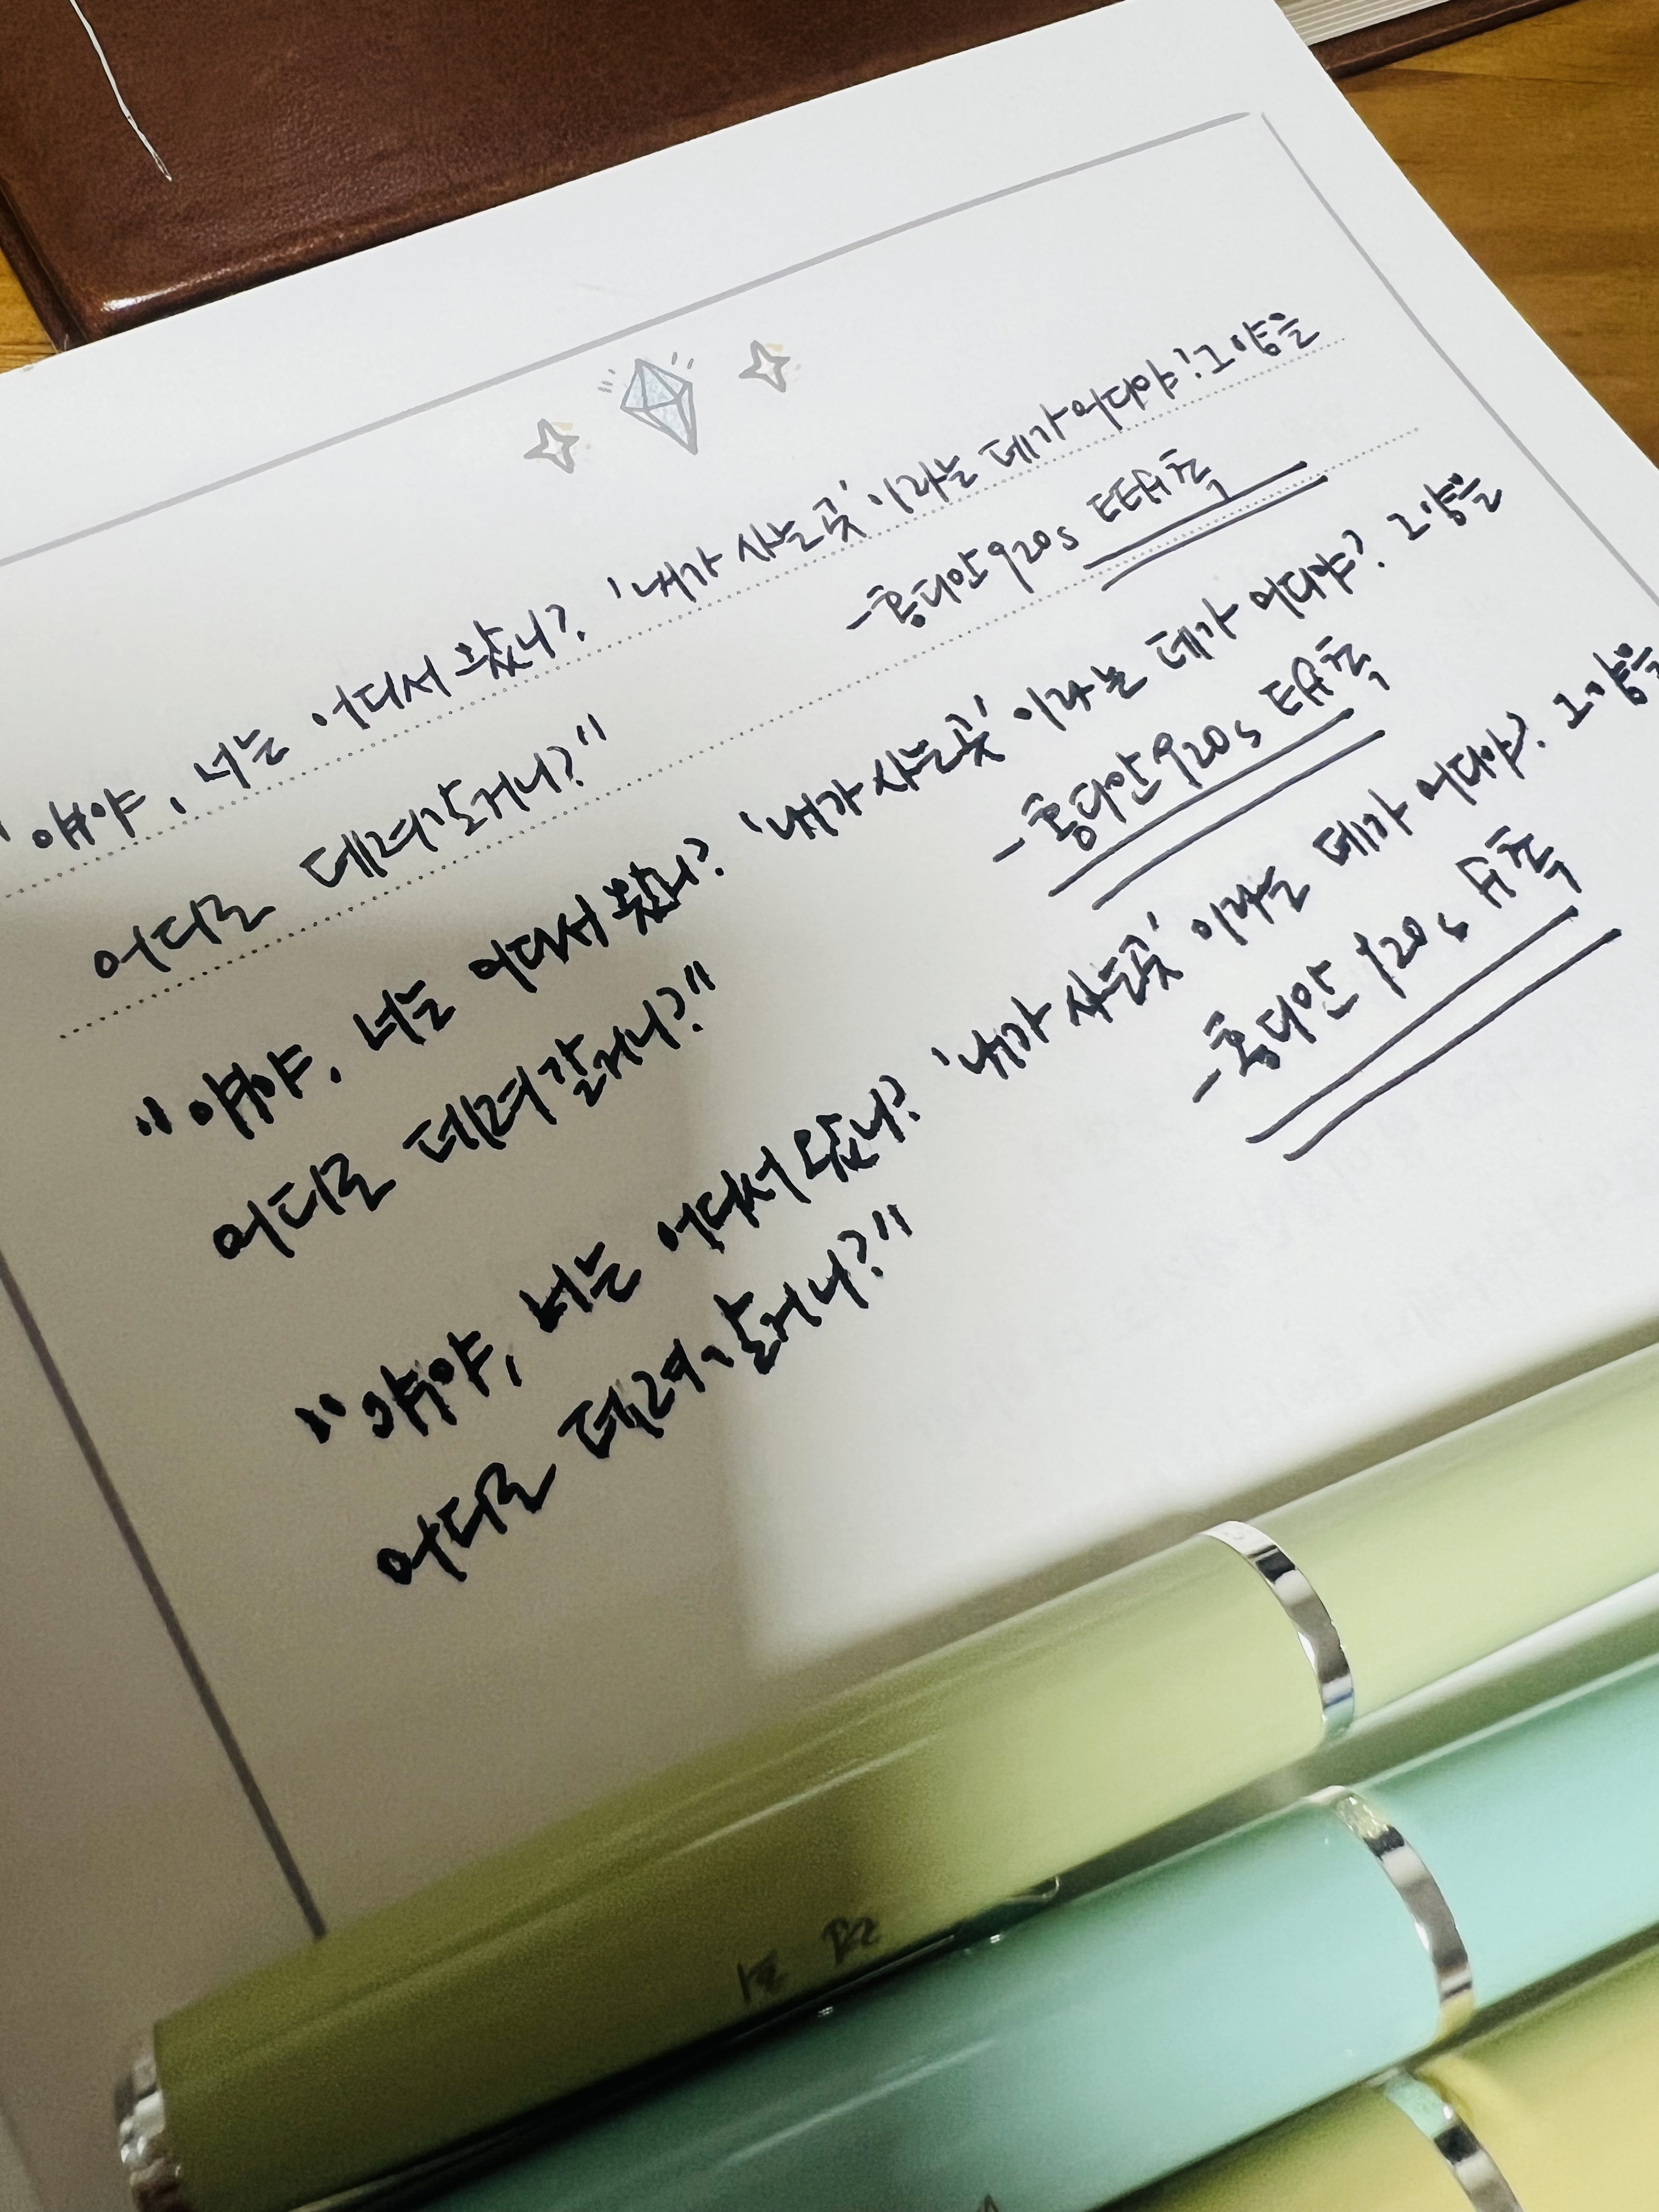 "얘야, 너는 어디서 왔니? '내가 사는 곳'이라는 데가 어디야? 그 양을
어디로 데려갈거니?"
-홍디안 920s EEF촉
"얘야, 너는 어디서 왔니? '내가 사는 곳'이라는 데가 어디야? 그 양을
어디로 데려갈거니?"
-홍디안 920s EF촉
"얘야, 너는 어디서 왔니? '내가 사는 곳'이라는 데가 어디야? 그 양을
어디로 데려갈거니?"
-홍디안 920s F촉